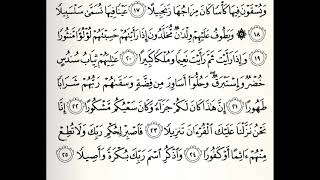 وَيُسْقَوْنَ فِيهَا كَأْسًا كَانَ مِزَاجُهَا زَنجَبِيلًا ١٧ عَيْنًا فِيهَا تُسَمَّىٰ سَلْسَبِيلًا
١٨ وَيَطُوفُ عَلَيْهِمْ وِلْدَٰنٌ مُّخَلَّدُونَ إِذَا رَأَيْتَهُمْ حَسِبْتَهُمْ لُؤْلُؤًا مَّنثُورًا
١٩ وَإِذَا رَأَيْتَ ثَمَّ رَأَيْتَ نَعِيمًا وَمُلْكًا كَبِيرًا ٢٠ عَٰلِيَهُمْ ثِيَابُ سُندُسٍ
خُضْرٌ وَإِسْتَبْرَقٌ وَحُلُّوٓا۟ أَسَاوِرَ مِن فِضَّةٍ وَسَقَىٰهُمْ رَبُّهُمْ شَرَابًا
طَهُورًا ٢١ إِنَّ هَٰذَا كَانَ لَكُمْ جَزَآءً وَكَانَ سَعْيُكُم مَّشْكُورًا ٢٢
إِنَّا نَحْنُ نَزَّلْنَا عَلَيْكَ ٱلْقُرْءَانَ تَنزِيلًا ٢٣ فَٱصْبِرْ لِحُكْمِ رَبِّكَ وَلَا تُطِعْ
مِنْهُمْ ءَاثِمًا أَوْ كَفُورًا ٢٤ وَٱذْكُرِ ٱسْمَ رَبِّكَ بُكْرَةً وَأَصِيلًا ٢٥